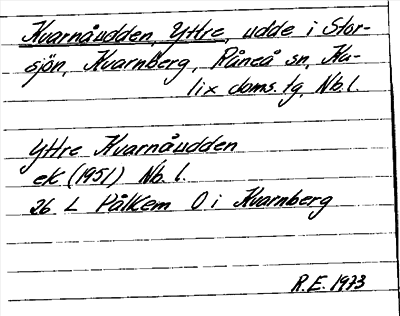 Kvarnåudden, Yttre, udde i Stor-
sjön, Kvarnberg, Råneå sn, Ka-
lix doms. tg, Nb. l.
Yttre Kvarnåudden
ek (1951) Nb l.
26 L Pålkem O i Kvarnberg
R.E. 1973